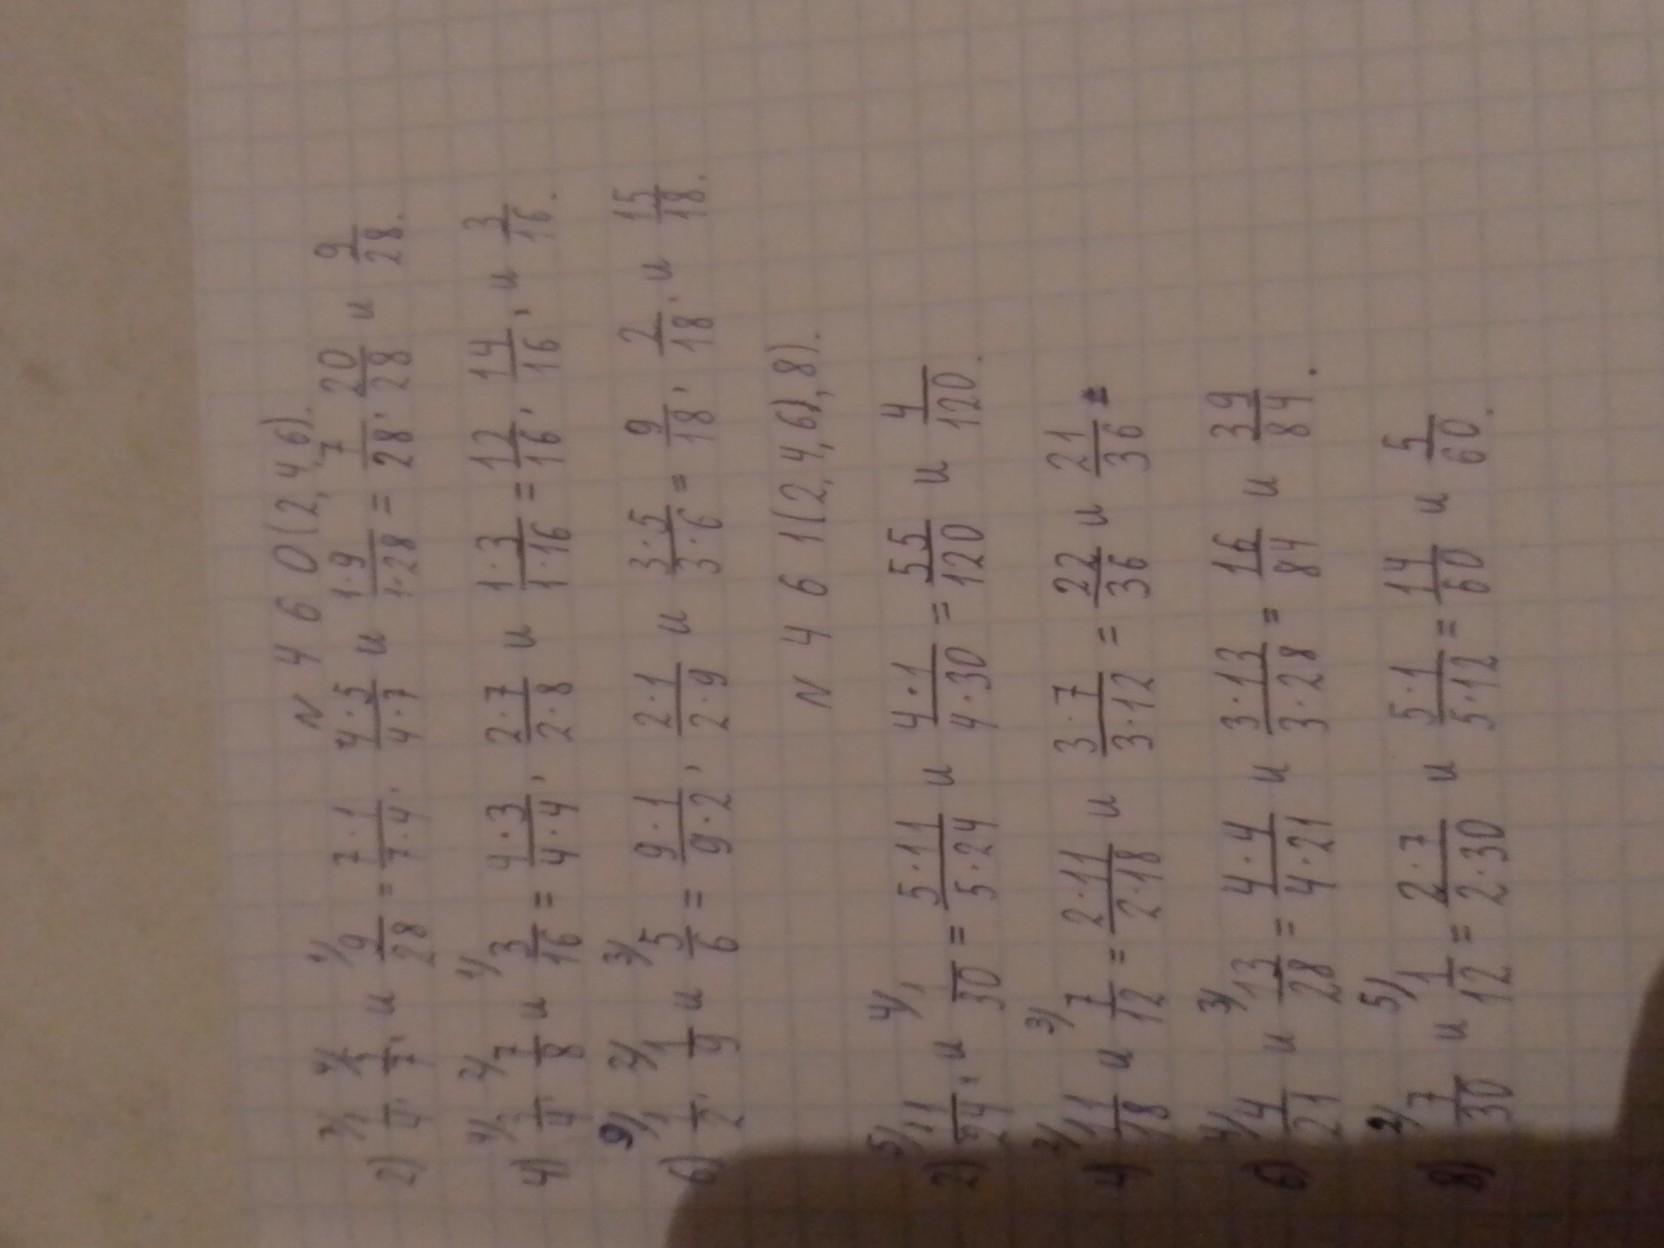 N 460(2,4,6).
2) 7/ 1/4, 4/ 5/7, и 1/ 9/28 = 7·1/7·4, 4·5/4·7 и 1·9/1·28 = 7/28, 20/28 и 9/28.
4) 4/ 3/4, 2/ 7/8 и 1/ 3/16 = 4·3/4·4, 2·7/2·8 и 1·3/1·16 = 12/16, 14/16, и 3/16.
6) 9/ 1/2, 2/ 1/9 и 3/ 5/6 = 9·1/9·2, 2·1/2·9 и 3·5/3·6 = 9/18, 2/18, и 15/18.
N 461(2,4,6),8).
2) 5/ 11/24, и 4/ 1/30 = 5·11/5·24 и 4·1/4·30 = 55/120 и 4/120.
4) 2/ 11/18 и 3/ 7/12 = 2·11/2·18 и 3·7/3·12 = 22/36 и 21/36
6) 4/ 4/21 и 3/ 13/28 = 4·4/4·21 и 3·13/3·28 = 16/84 и 39/84.
8) 2/ 7/30 и 5/ 1/12 = 2·7/2·30 и 5·1/5·12 = 14/60 и 5/60.